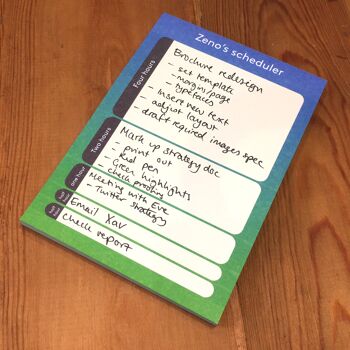 Zeno's scheduler
Four hours
Brochure redesign
- set template
- margins/page
- typefaces
- insert new text
- adjust layout
- draft required images spec
Two hours
Mark up strategy doc
- print out
- Red pen
- Green highlights
- check proofing
One hour
Meeting with Eve
- Twitter strategy
Half hour
Email Xav
Half hour
Check report